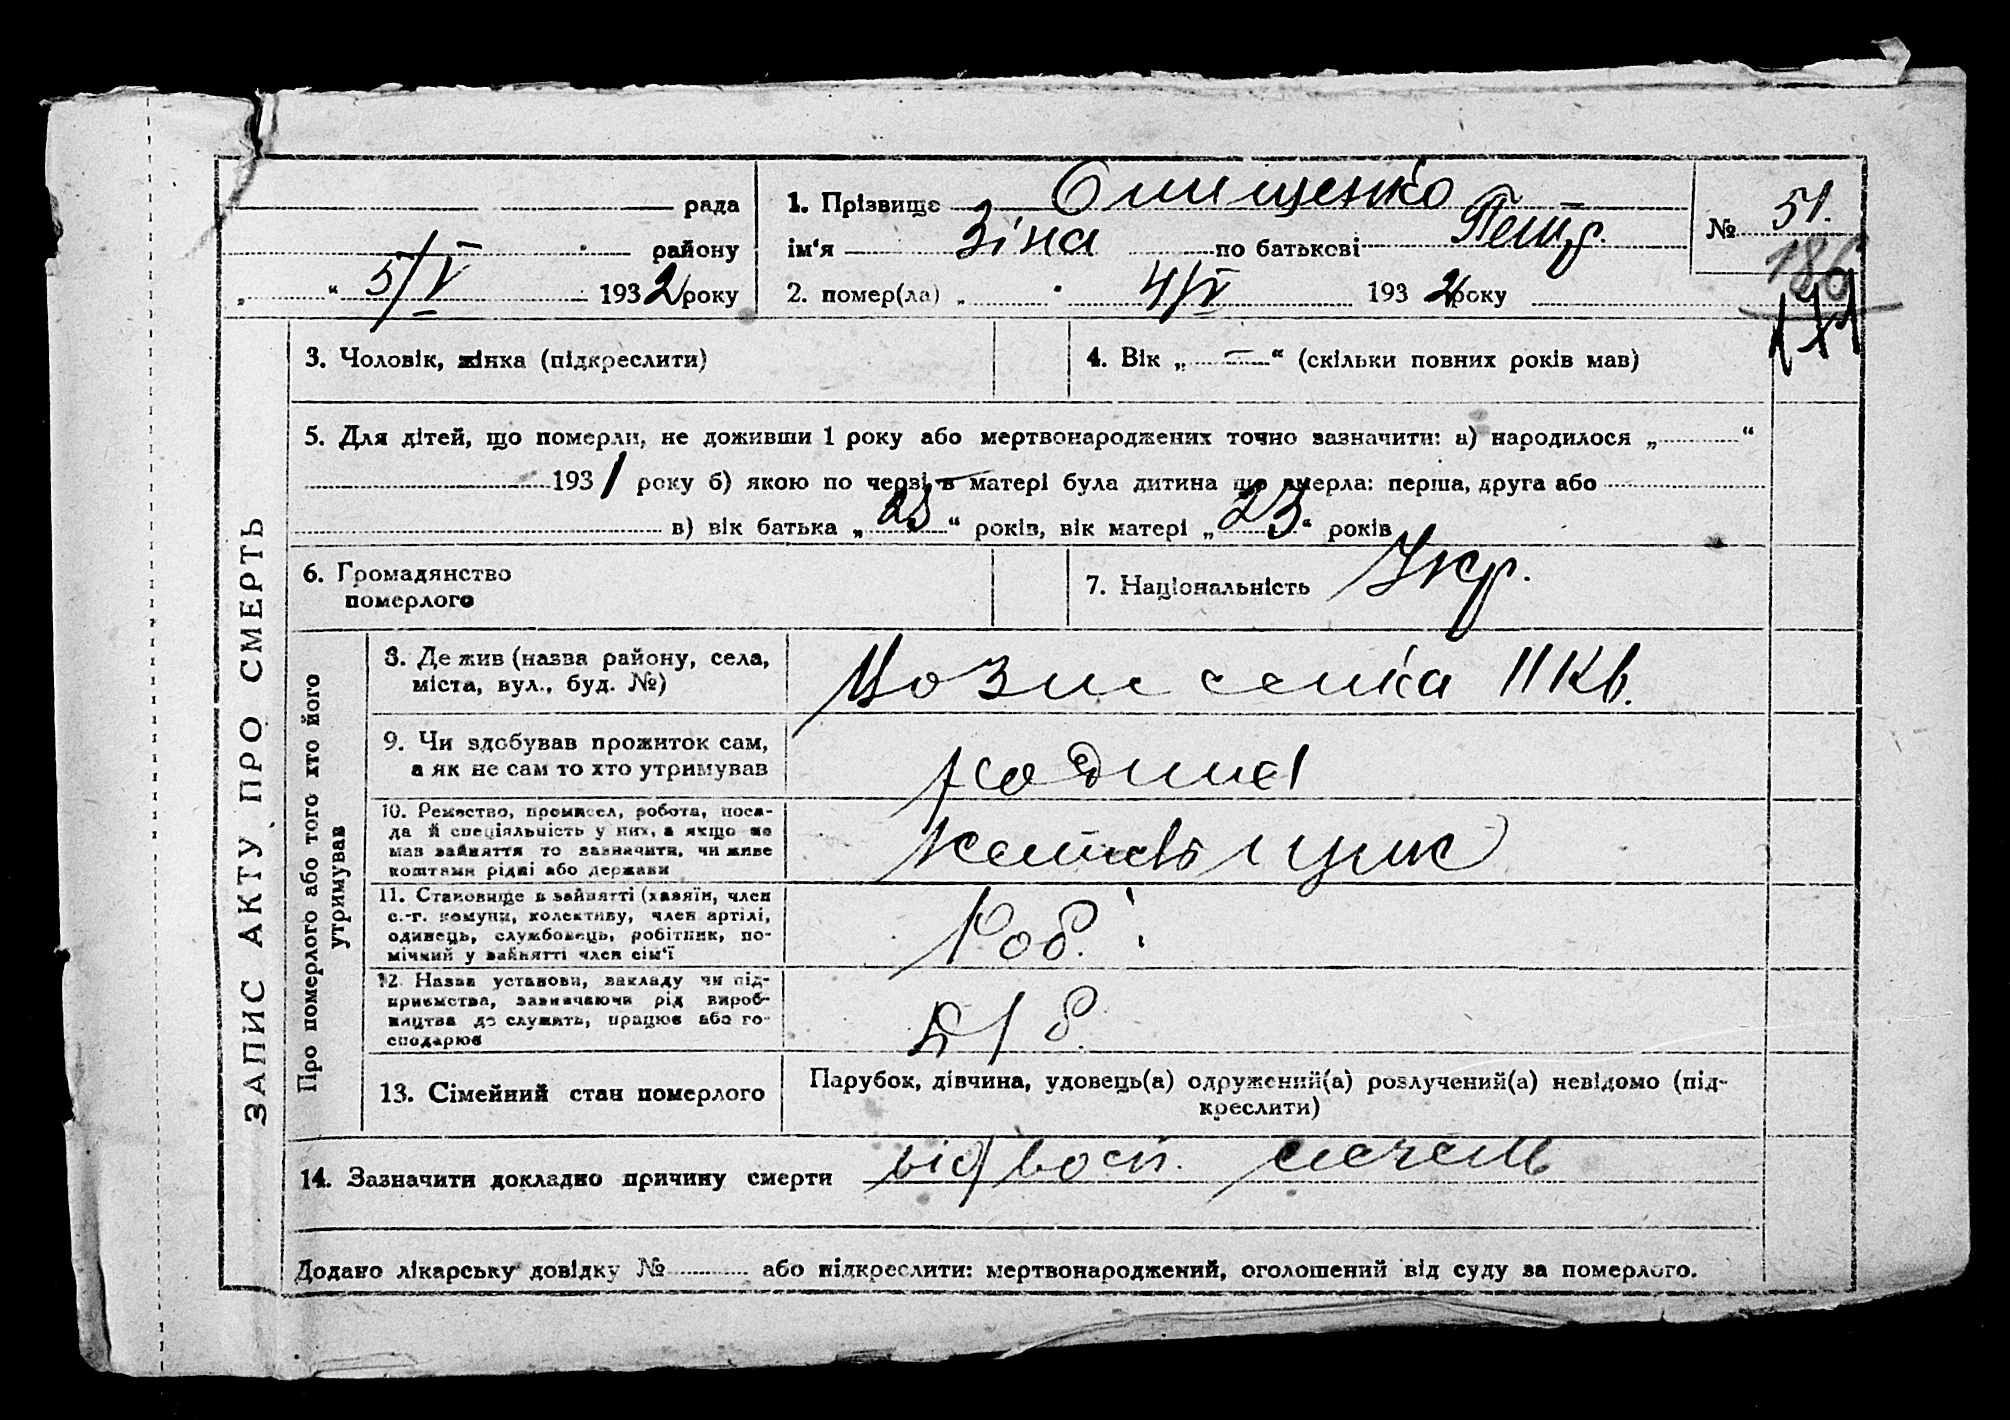 ЗАПИС АКТУ ПРО СМЕРТЬ
рада
району
„ “ 5/V 1932 року
1. Прізвище Онищенко
ім‘я Зіна по батькові Петр.
2. помер(ла) „ 4/V 1932 року
№ 51.
186
3. Чоловік, жінка (підкреслити)
4. Вік „ – “ (скільки повних років мав)
5. Для дітей, що померли, не доживши 1 року або мертвонароджених точно зазначити: а) народилося „ “
1931 року б) якою по черзі в матері була дитина що вмерла: перша, друга або
в) вік батька „ 25 “ років, вік матері „ 23 “ років
6. Громадянство
померлого
7. Національність Укр.
Про померлого або того хто його
утримував
8. Де жив (назва району, села,
міста, вул., буд. №)
Вознесенка 11 кв.
9. Чи здобував прожиток сам,
а як не сам то хто утримував
родина
10. Ремество, промисел, робота, поса-
да й спеціяльність у них, а якщо не
мав зайняття то зазначити, чи живе
коштами рідні або держави
11. Становище в зайнятті (хазяїн, член
с.-г. комуни, колективу, член артілі,
одинець, службовець, робітник, по-
мічний у зайнятті член сім‘ї
Роб.
12. Назва установи, закладу чи під-
приємства, зазначаючи рід вироб-
ництва де служить, працює або го-
сподарює
13. Сімейний стан померлого
Парубок, дівчина, удовець(а) одружений(а) розлучений(а) невідомо (під-
креслити)
14. Зазначити докладно причину смерти від восп. легень
Додано лікарську довідку № або підкреслити: мертвонароджений, оголошений від суду за померлого.